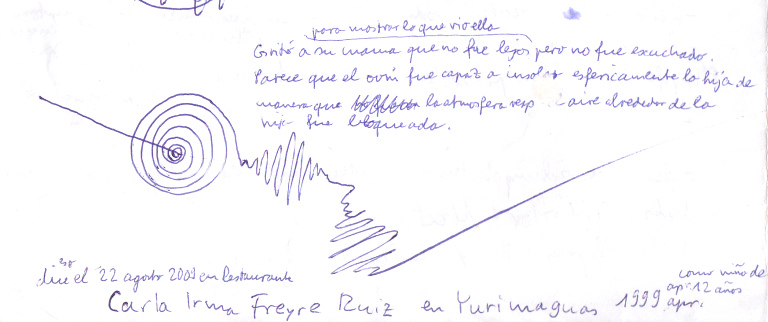 para mostrar lo que vio ella
Gritó a su mama que no fue lejos pero no fue exuchado.
Parece que el ovni fue capaz a insolar esfericamente la hija de
manera que la atmosfera resp. aire alrededor de la
hija fue bloqueada.
el 22 agosto 2009 en Restaurante
Carla Irma Freyre Ruiz en Yurimaguas 1999 apr.
como niño de
apr. 12 años